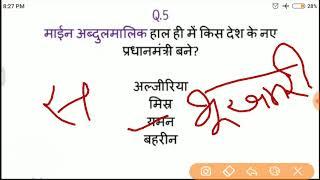 8:27 PM
28%
Q.5
माईन अब्दुलमालिक हाल ही में किस देश के नए
प्रधानमंत्री बने?
अल्जीरिया
मिस्र
यमन
बहरीन